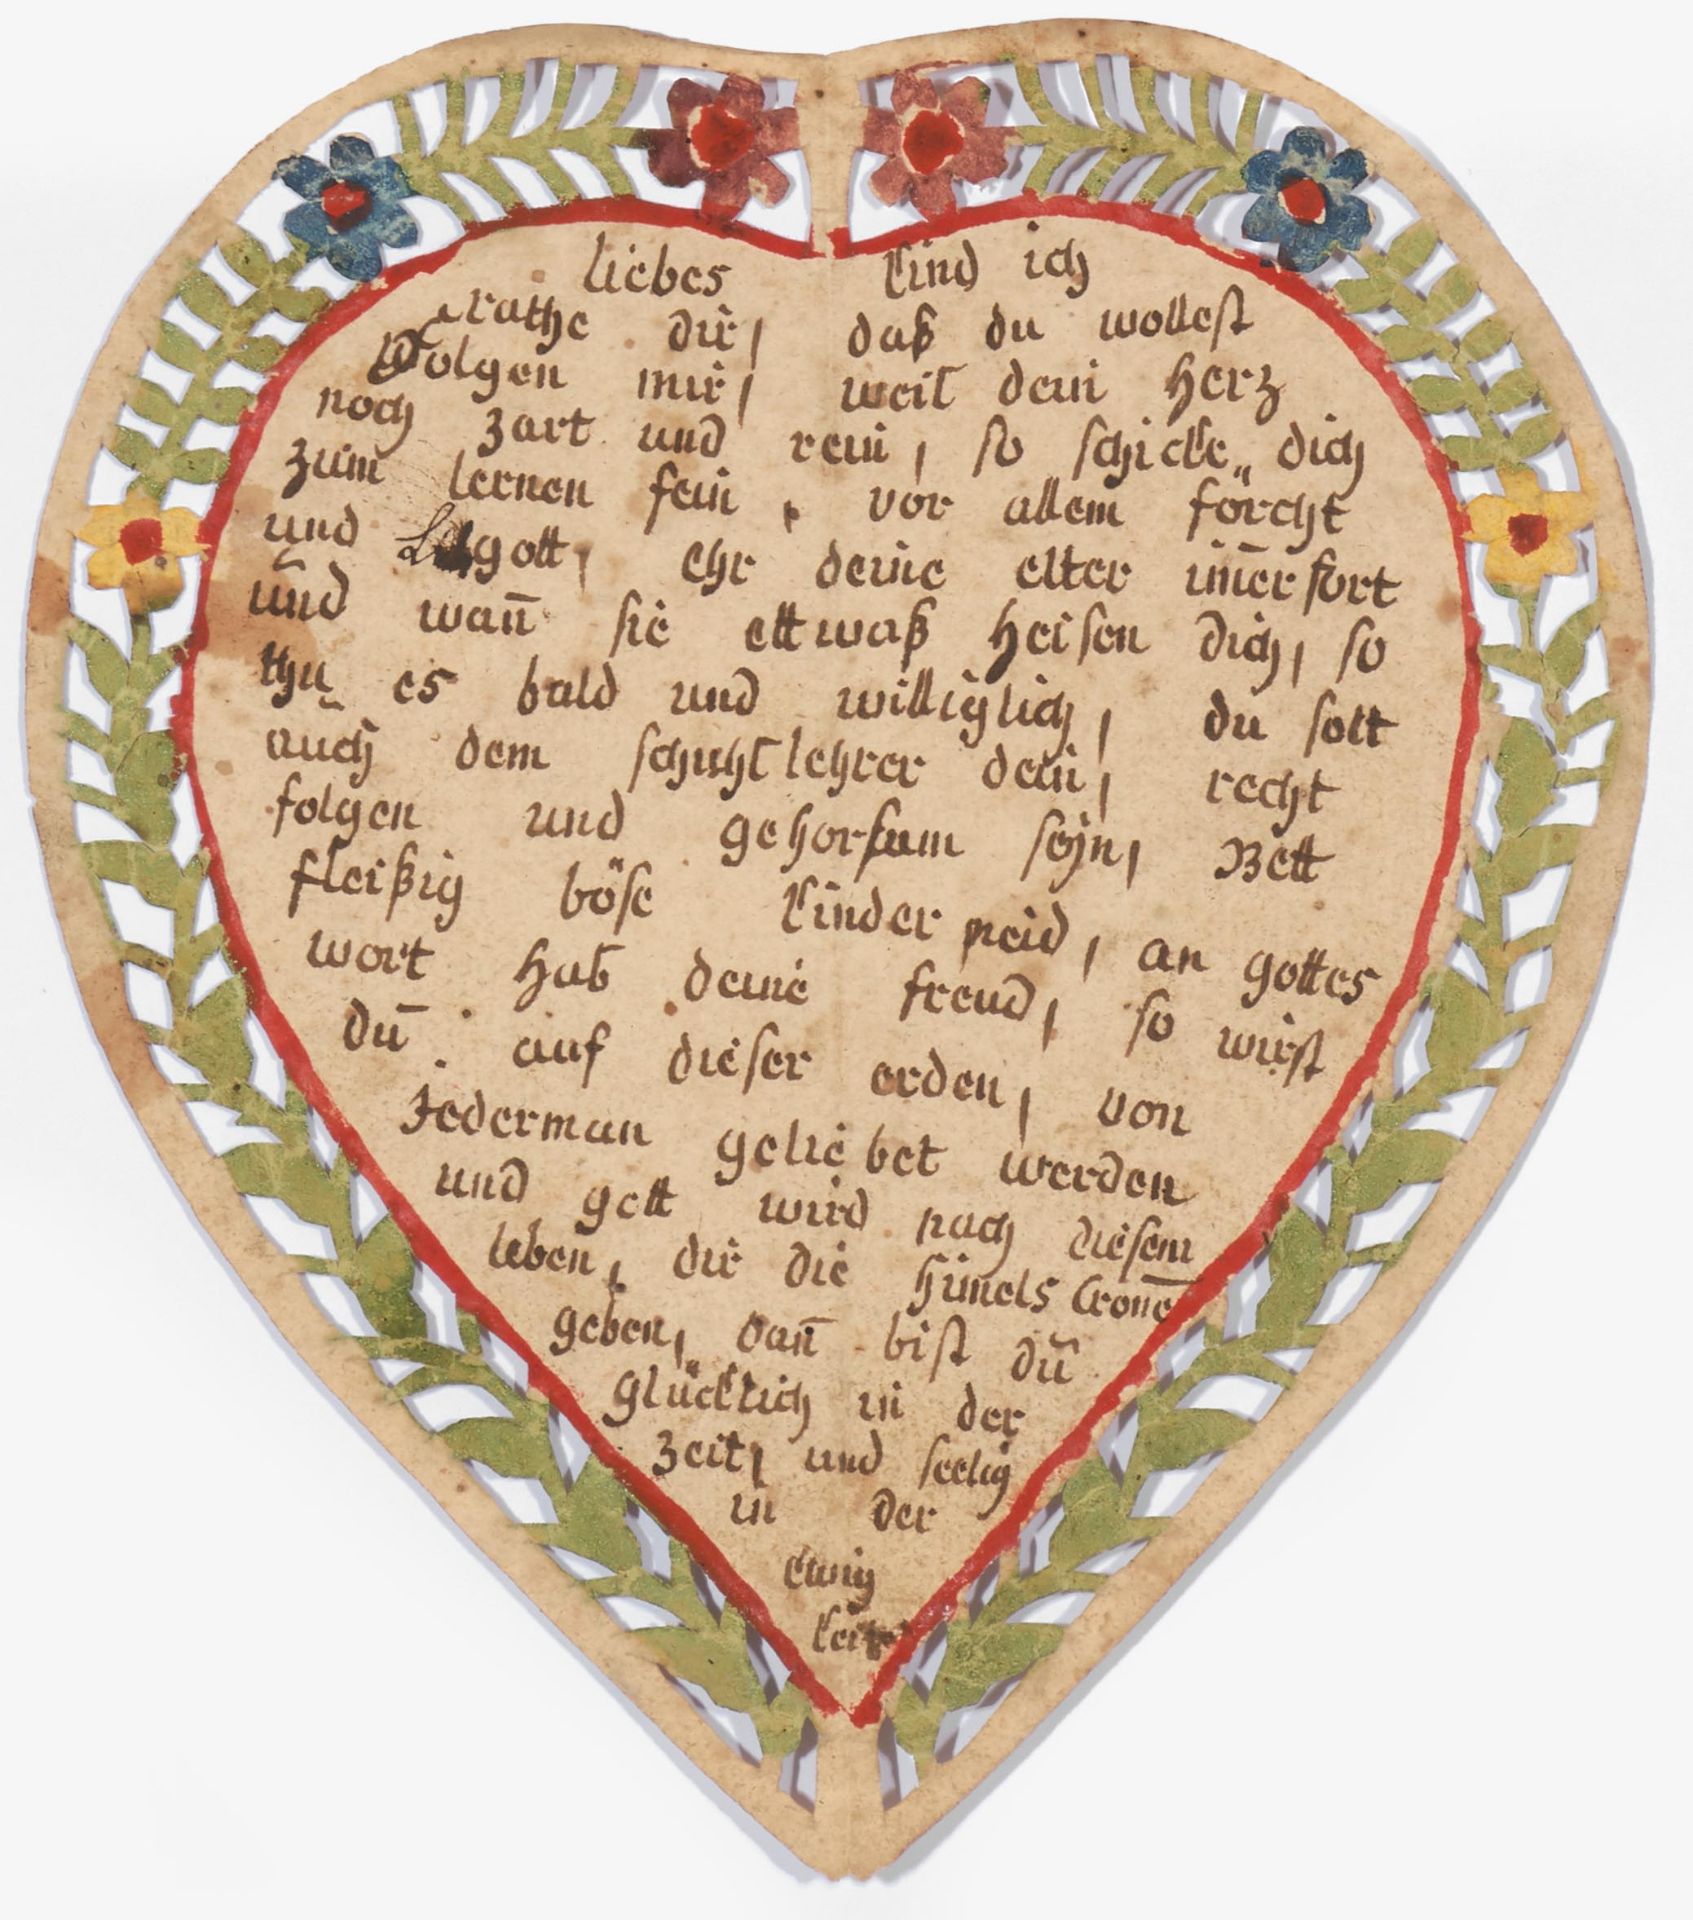 liebes kind ich
rathe dir, daß du wollest
folgen mir, weil dein Herz
noch zart und rein, so schicke„ dich
zum lernen fein, vor allem förcht
und gott, ehr deine elter im̄er fort
und wan̄ sie ettwaß heisen dich, so
thu es bald und williglich, du solt
auch dem schuhllehrer dein, recht
folgen und gehorsam seÿn, Bett
fleißig böse kinder meid, an gottes
wort hab deine freud, so wirst
du auf dieser erden, von
Jederman geliebet werden
und gott wird nach diesem
leben, dir die him̄els Crone
geben, dan̄ bist du
glücklich in der
zeit, und seelig
in der
Ewig
keit